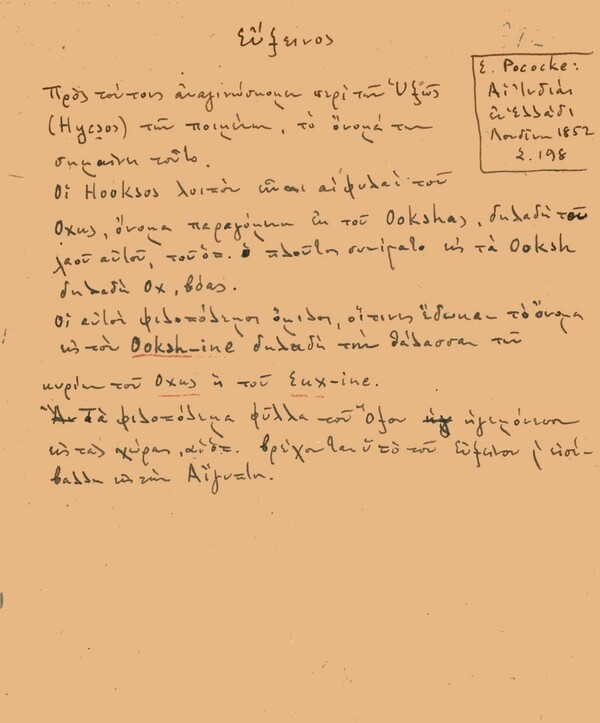 Εὔξεινος
Ε. Pococke:
Αἱ Ἰνδίαι
ἐν Ἑλλάδι
Λονδῖνον 1852
Σ. 198
Πρὸς τούτοις ἀναγινώσκομεν περὶ τῶν Ὑξῶς
(Hycsos) τῶν ποιμένων, τὸ ὄνομά των
σημαίνει τοῦτο.
Οἱ Hooksos λοιπὸν εἶναι αἱ φυλαὶ τοῦ
Οχυς, ὄνομα παραγόμενον ἐκ τοῦ Ookshas, δηλαδὴ τοῦ
λαοῦ αὐτοῦ, τοῦ ὁπ. ὁ πλοῦτος συνίστατο εἰς τὰ Ooksh
δηλαδὴ Ox, βόας.
Οἱ αὐτοὶ φιλοπόλεμοι ὅμιλοι, οἵτινες ἔδωκαν τὸ ὄνομα
εἰς τὸν Ooksh-ine δηλαδὴ τὴν θάλασσαν τῶν
κυρίων τοῦ Οχυς ἢ τοῦ Eux-ine.
Τὰ φιλοπόλεμα φῦλλα τοῦ Ὄξου ἡγεμόνευον
εἰς τὰς χώρας, αἱ ὁπ. βρέχονται ὑπὸ τοῦ Εὐξείνου ἢ εἰσέ-
βαλλον εἰς τὴν Αἴγυπτον.